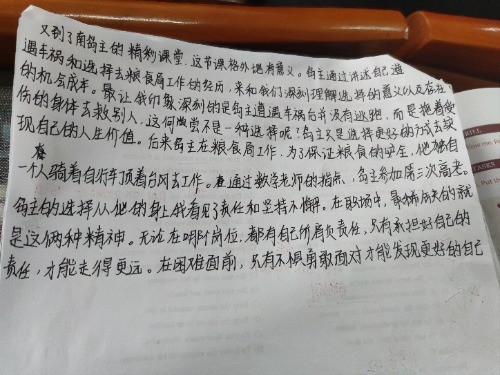 又到了南岛主的精彩课堂，这节课格外地有意义。岛主通过讲述自己遭
遇车祸和选择去粮食局工作的经历，来和我们深刻理解选择的意义以及存在
的机会成本。最让我印象深刻的是岛主遭遇车祸后并没有逃跑，而是拖着受
伤的身体去救别人，这何尝不是一种选择呢？岛主只是选择更好的方式去实
现自己的人生价值。后来岛主在粮食局工作，为了保证粮食的安全，他敢自
一个人骑着自行车顶着台风去工作。在通过数学老师的指点，岛主参加第三次高考。
岛主的选择从他的身上我看见了责任和坚持不懈。在职场中，最稀缺的就
是这俩种精神。无论在哪个岗位，都有自己所肩负责任，只有承担好自己的
责任，才能走得更远。在困难面前，只有不惧勇敢面对才能发现更好的自己
CASES
Put the